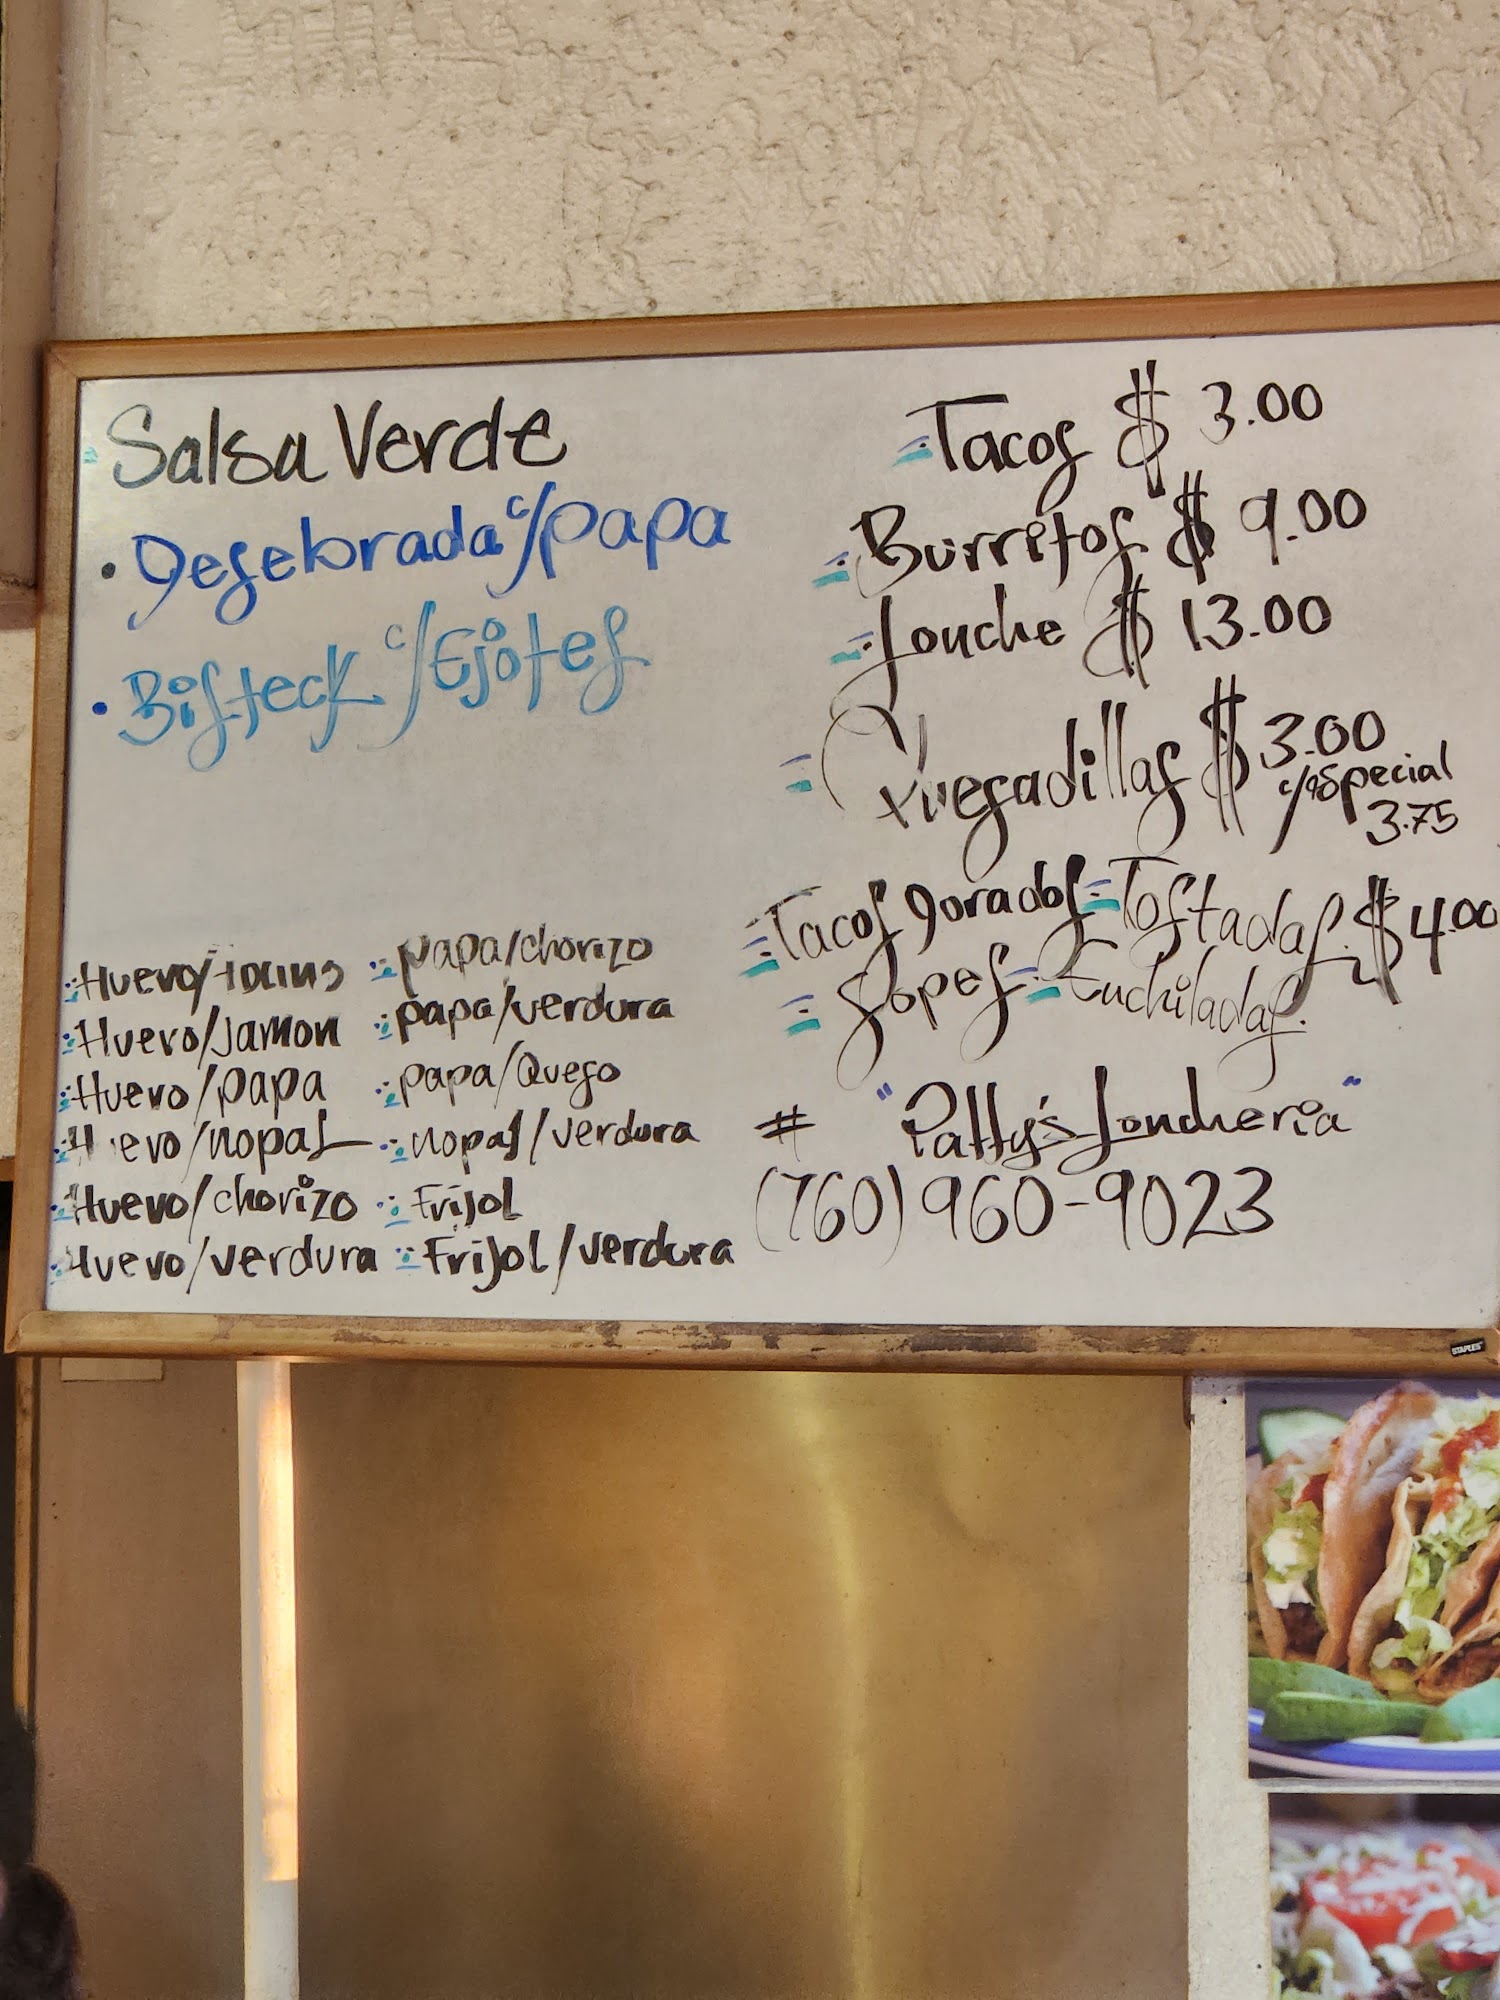 Salsa Verde
• Desebrada c/papa
• Bisteck c/Ejotes
Huevo/tocino
Huevo/Jamon
Huevo/papa
Huevo/nopal
Huevo/chorizo
Huevo/verdura
papa/chorizo
papa/verdura
papa/Queso
nopal/verdura
Frijol
Frijol/verdura
Tacos $ 3.00
Burritos $ 9.00
Lonche $ 13.00
Quesadillas $ 3.00
c/especial
3.75
Tacos Dorados Tostadas $4.00
Sopes Enchiladas.
# "Patty's Loncheria"
(760) 960-9023
STAPLES